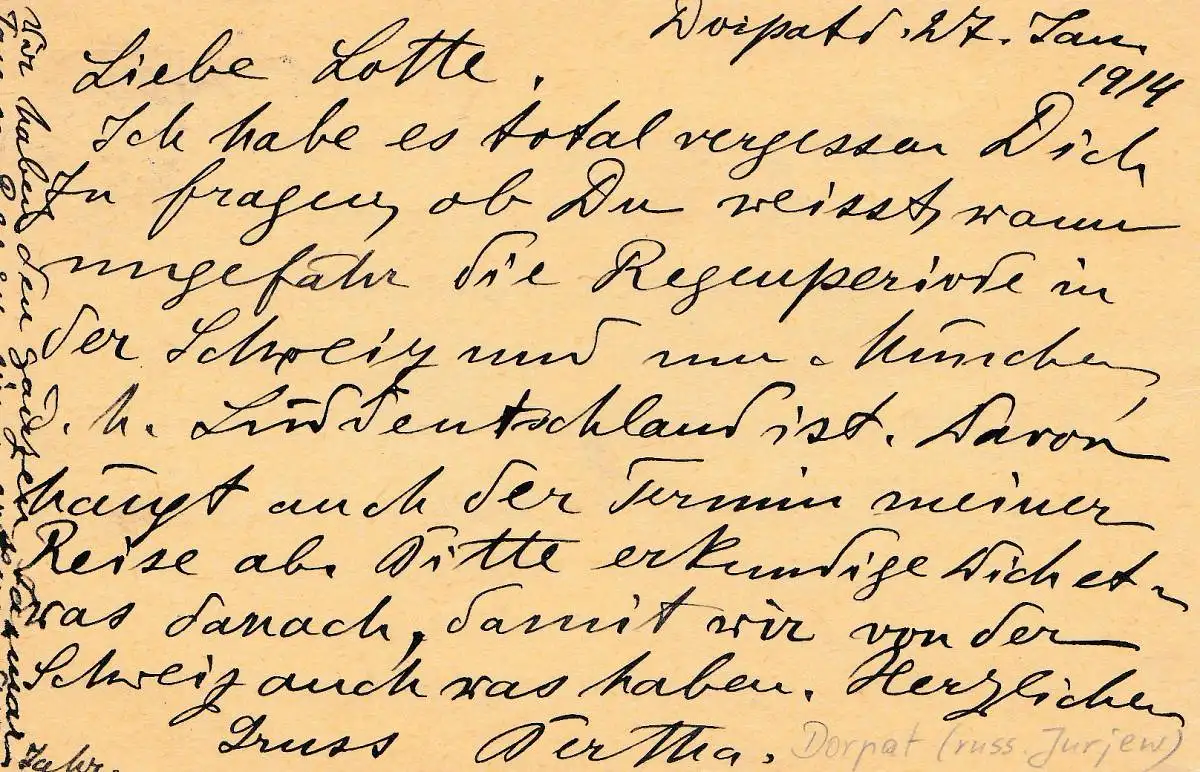 Dorpat d. 27. Jan.
1914
Liebe Lotte.
Ich habe es total vergessen Dich
zu fragen, ob Du weisst, wann
ungefähr die Regenperiode in
der Schweiz und um München,
d. h. Süddeutschland ist. Davon
hängt auch der Termin meiner
Reise ab. Bitte erkundige Dich et-
was danach, damit wir von der
Schweiz auch was haben. Herzlichen
Gruss Bertha.
Dorpat (russ. Jurjew)
Wir haben den ganzen Januar
Jahr.